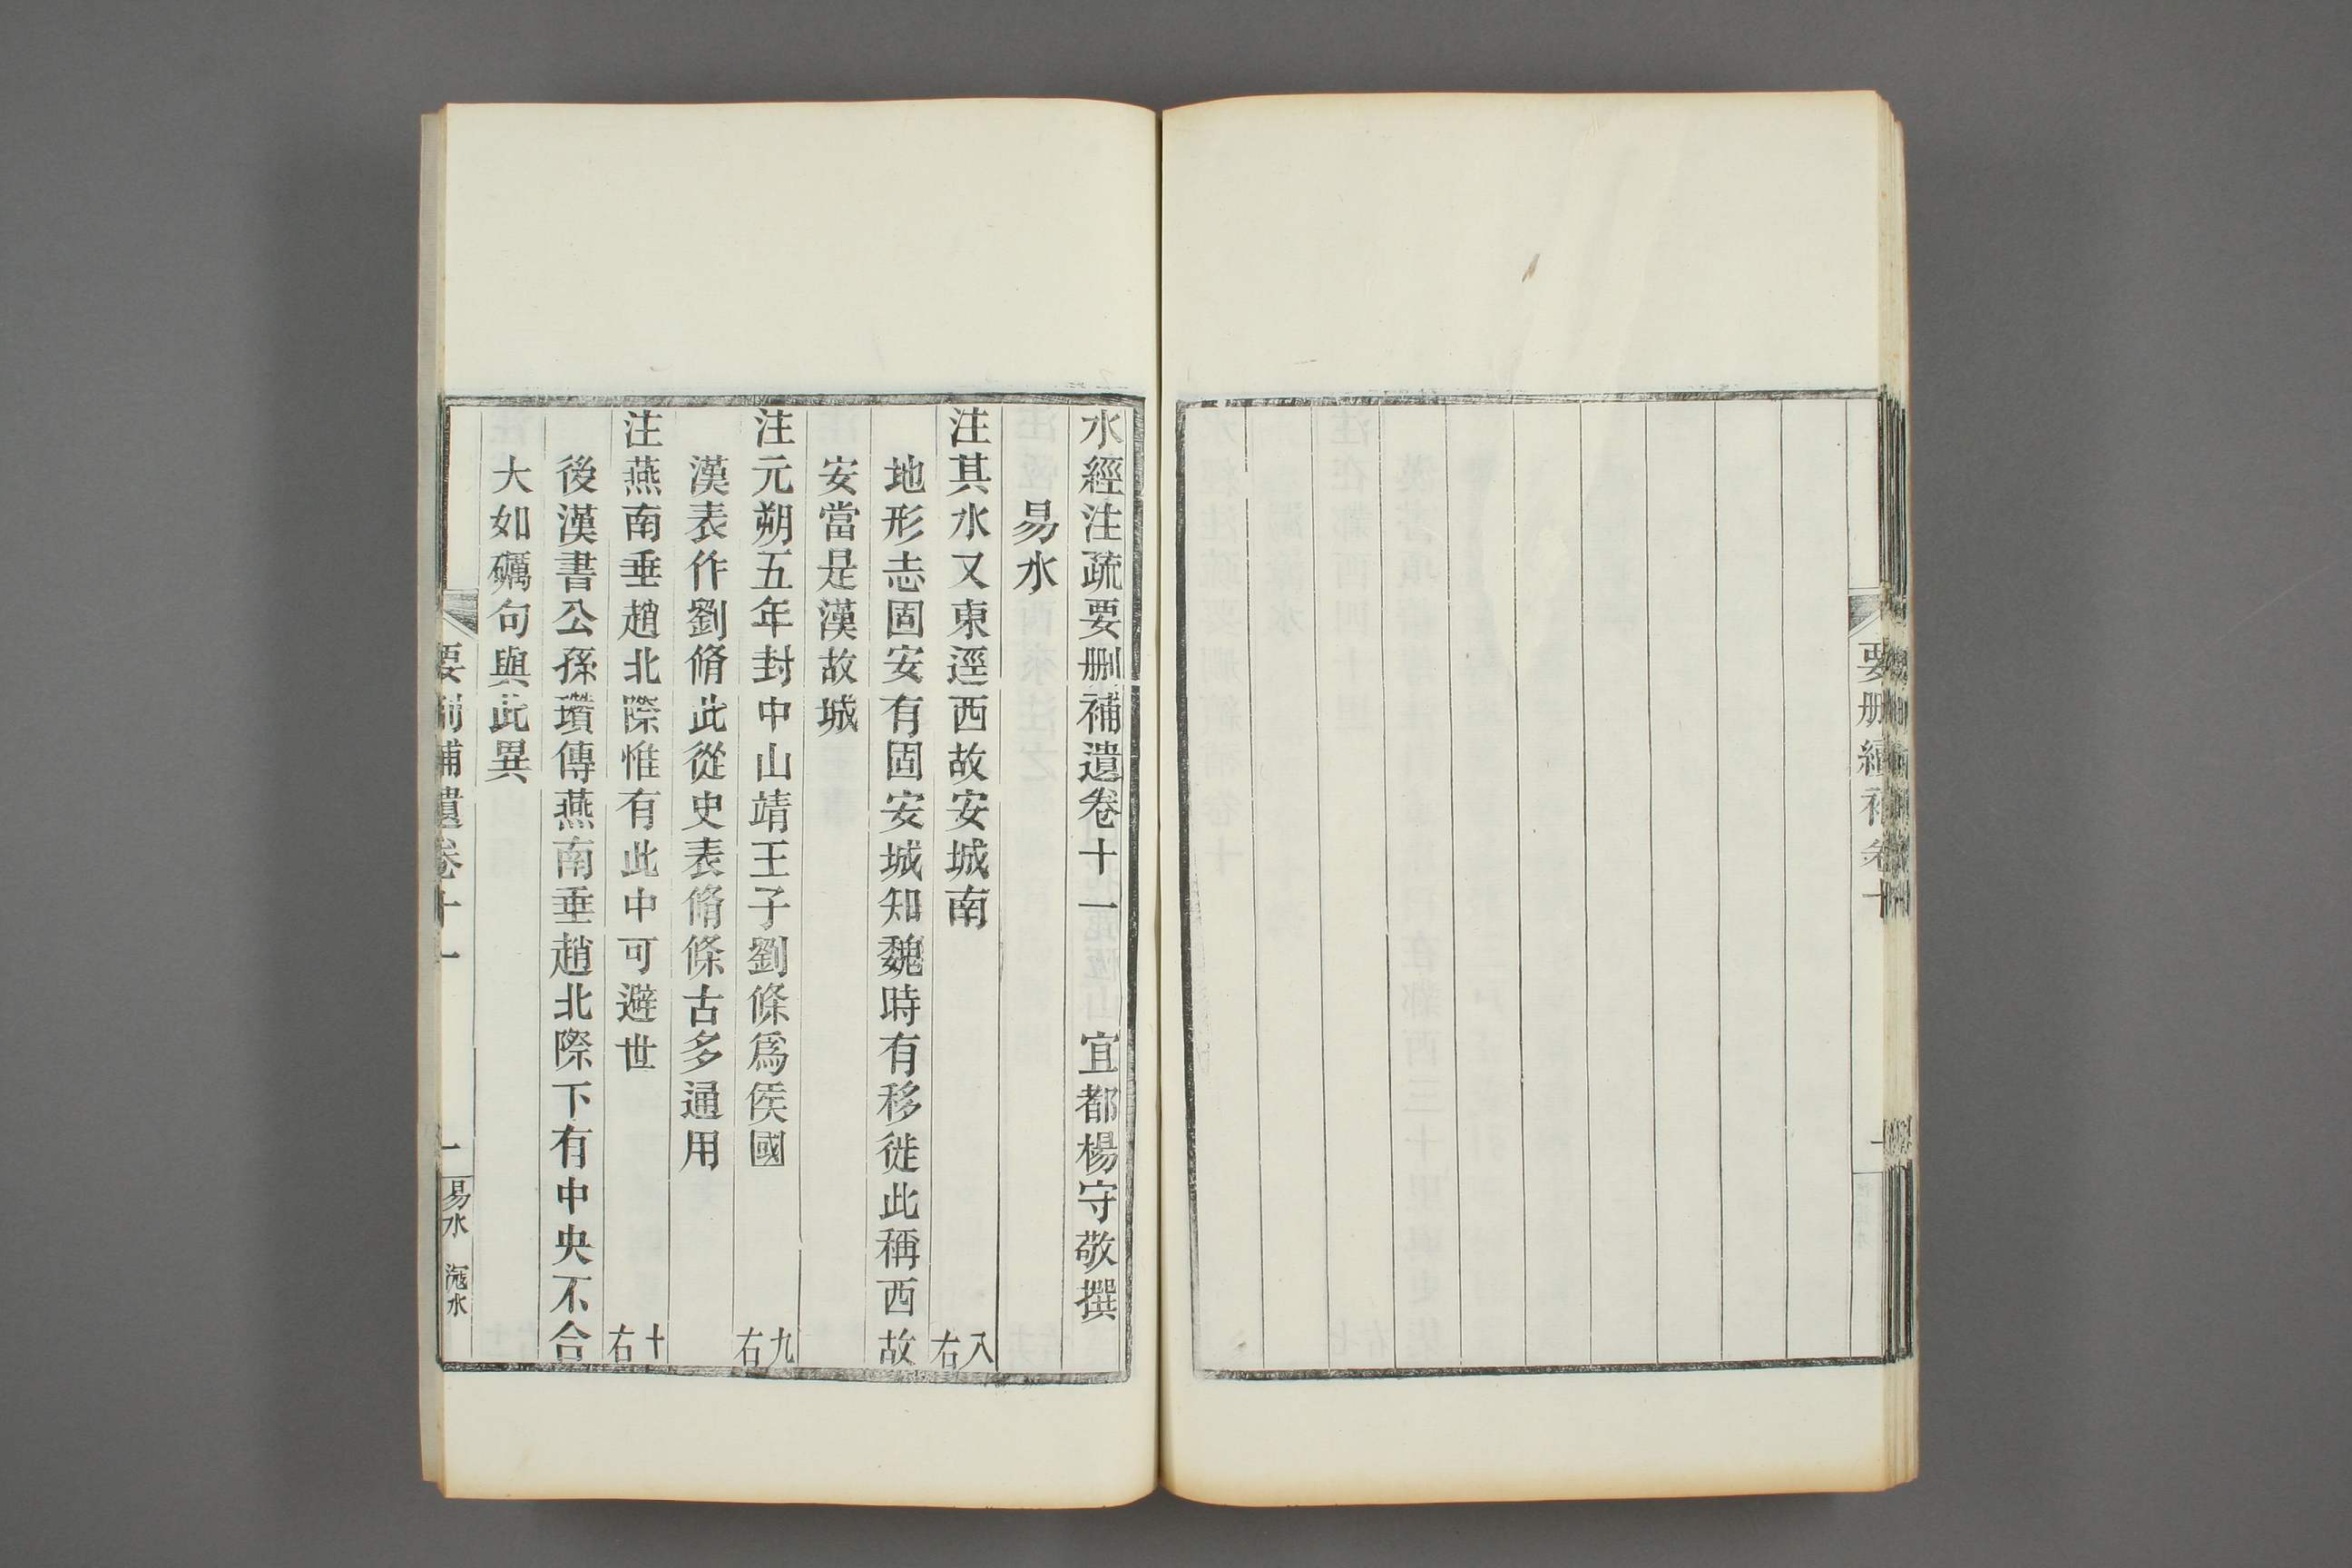 要刪續補卷十
水經注疏要刪補遺卷十一　宜都楊守敬撰
易水
注其水又東逕西故安城南　八右
地形志固安有固安城知魏時有移徙此稱西故
安當是漢故城
注元朔五年封中山靖王子劉條爲侯國　九右
漢表作劉脩此從史表脩條古多通用
注燕南垂趙北際惟有此中可避世　十右
後漢書公孫瓚傳燕南垂趙北際下有中央不合
大如礪句與此異
要刪補遺卷十一　一　易水　滱水